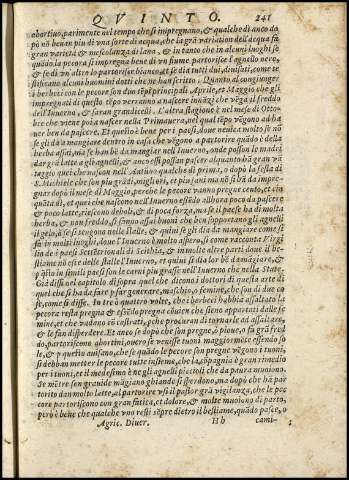 QVINTO. 241
abortiuo, parimente nel tempo che si impregnano, & qualche dì anco do
pò nō beuan piu dì vna sorte di acqua, che la grā variation dell'acqua fa
gran varietà & mescolanza di lana, & in tanto che in alcuni luoghi se
quādo la pecora si impregna beue di vn fiume partorisce l'agnello nero,
& se di vn altro lo partorisce bianco, et se dìa tutti dui, come te
stificano alcuni huomini dotti che ne han scritto. Quanto al congiunger
i berbeci con le pecore son duo tēpi principali Aprile, et Maggio che gli
impregnati di questo tēpo verranno a nascere inanzi che vēga il freddo
dell'Inuerno, & saran grandicelli. L'altra stagione è nel mese di Otto-
bre che viene poi a nascer nella Primauera, nel qual tēpo vēgono ad ha
uer ben da pascere. Et questo è bene per i paesi, doue neuica molto se nō
se gli dà la mangiare dentro in casa che vēgono a partorire quādo è della
herba assai, ma se han bē da mangier nell'Inuerno, onde posson le madri
dar grā latte a gli agnelli, & anco essi possan pascer alquanto hā gran vā
taggio quei che nascon nell'Antiuo qualche dì prima, o dopò la festa dì
S. Michiele che son piu grāti, migliori, et piu sani ma nō si hā da impre
gnar dopò il mese di Maggio, perche le pecore vanno pregne cento, et cin
quāta dì, et quei che nascono nell'Inuerno essēdo allhora poco da pascere
& poco latte, riescono deboli, & dì poca forza, mo se il paese hà di molta
herba, & non freddo, si fanno assai buoni che ben sopportano gli agnelli
il gelo, & se si tengono nelle stalle, & quini se gli dìa da mangiare come si
fa in molti luoghi, doue l'Inuerno è molto aspro, si come racconta Virgi
lio de i paesi Settētrionali dì Scithia, & in molte altre parti doue il be-
stiame nō esce delle stalle l'Inuerno, et quini si dìa lor bē da mangiare, &
p q̄sto in simili paesi son le carni piu grasse nell'Inuerno che nella State.
Già dissi nel capitolo dì sopra quel che dicono i dottori di questa arte dì
quel che si ha da fare p far generare, maschio, o femine, che son dì due co
se, come si disse. In tre ò quattro volte, che i barbeci habbia assaltato la
pecora resta pregna & essēdo pregna cōuien che sieno appartati dalle fe
mine, et che vadano cō castrati, pche procuran dì tornarle ad assaltare,
& le fan disperdere. Et anco se dopò che son pregne, ò pioue, o fa grā fred
do, partorisceno abortini, ouero se venisse tuoni maggiormēte essendo so
le, & p questo auisano, che se quādo le pecore son pregne vēgono i tuoni,
si debban metter le pecore tutte insieme, che la cōpagnia è gran rimedio
per i tuoni, et il medesimo è ne gli agnelli piccioli che da paura muoiono.
Se mētre son gravide māgiano ghiande si sperdono, ma dopò che hā par
torito dan molto latte, al partorire vsi il pastor grā vigilanza, che le pe
core partoriscono con gran fatica, et dolore, & molte muoiono dì parto,
però è bene che qualche vno resti sēpre dietro il bestiame, quādo pasce, o
Agric. Diuer. Hh cami-